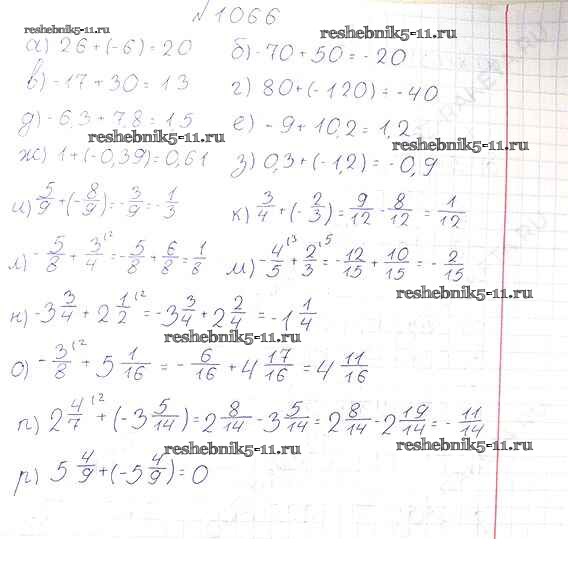 №1066
reshebnik5-11.ru
reshebnik5-11.ru
а) 26+(-6)=20 б) -70+50=-20
в) -17+30=13 г) 80+(-120)=-40
д) -6,3+7,8=1,5 е) -9+10,2=1,2
reshebnik5-11.ru
reshebnik5-11.ru
ж) 1+(-0,39)=0,61 з) 0,3+(-1,2)=-0,9
и) 5/9+(-8/9)=-3/9=-1/3 к) 3/4+(-2/3)=9/12-8/12=1/12
л) -5/8+3/4^(2=-5/8+6/8=1/8 м) -4/5^(3+2/3^(5=-12/15+10/15=-2/15
reshebnik5-11.ru
н) -3 3/4+2 1/2^(2=-3 3/4+2 2/4=-1 1/4
reshebnik5-11.ru
о) -3/8^(2+5 1/16=-6/16+4 17/16=4 11/16
п) 2 4/7^(2+(-3 5/14)=2 8/14-3 5/14=2 8/14-2 19/14=-11/14
reshebnik5-11.ru
reshebnik5-11.ru
р) 5 4/9+(-5 4/9)=0